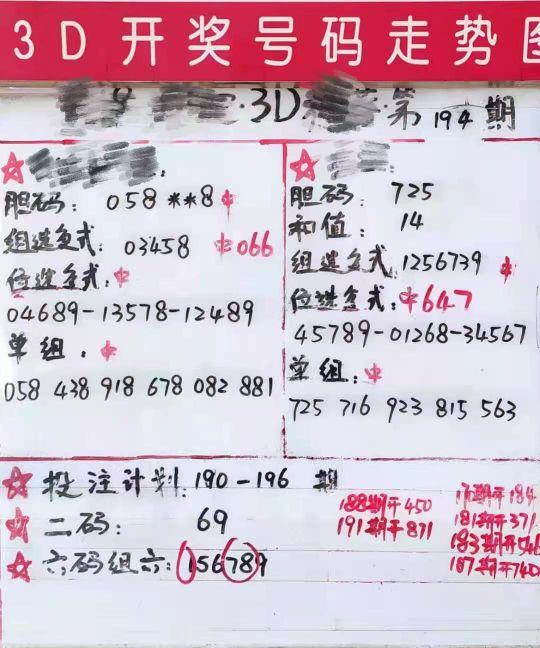 3D开奖号码走势图
·3D 第194期
胆码： 058**8中
组选复式：03458 中066
位选复式：中
04689-13578-12489
单组：中
058 438 918 678 082 881
胆码： 725
和值： 14
组选复式 1256739 中
位选复式：中647
45789-01268-34567
单组：中
725 716 923 815 563
投注计划：190-196 期
二码： 69
六码组六：156789
188期开450
191期开871
181期开371
183期开546
187期开740